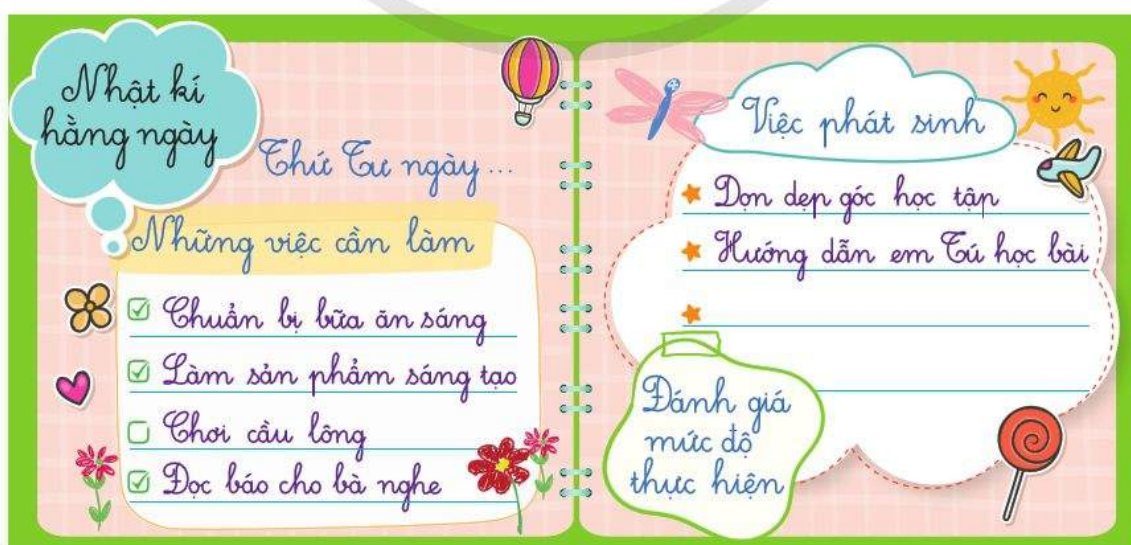 Nhật kí
hằng ngày
Thứ Tư ngày ...
Những việc cần làm
Chuẩn bị bữa ăn sáng
Làm sản phẩm sáng tạo
Chơi cầu lông
Đọc báo cho bà nghe
Việc phát sinh
Dọn dẹp góc học tập
Hướng dẫn em Tú học bài
Đánh giá
mức độ
thực hiện